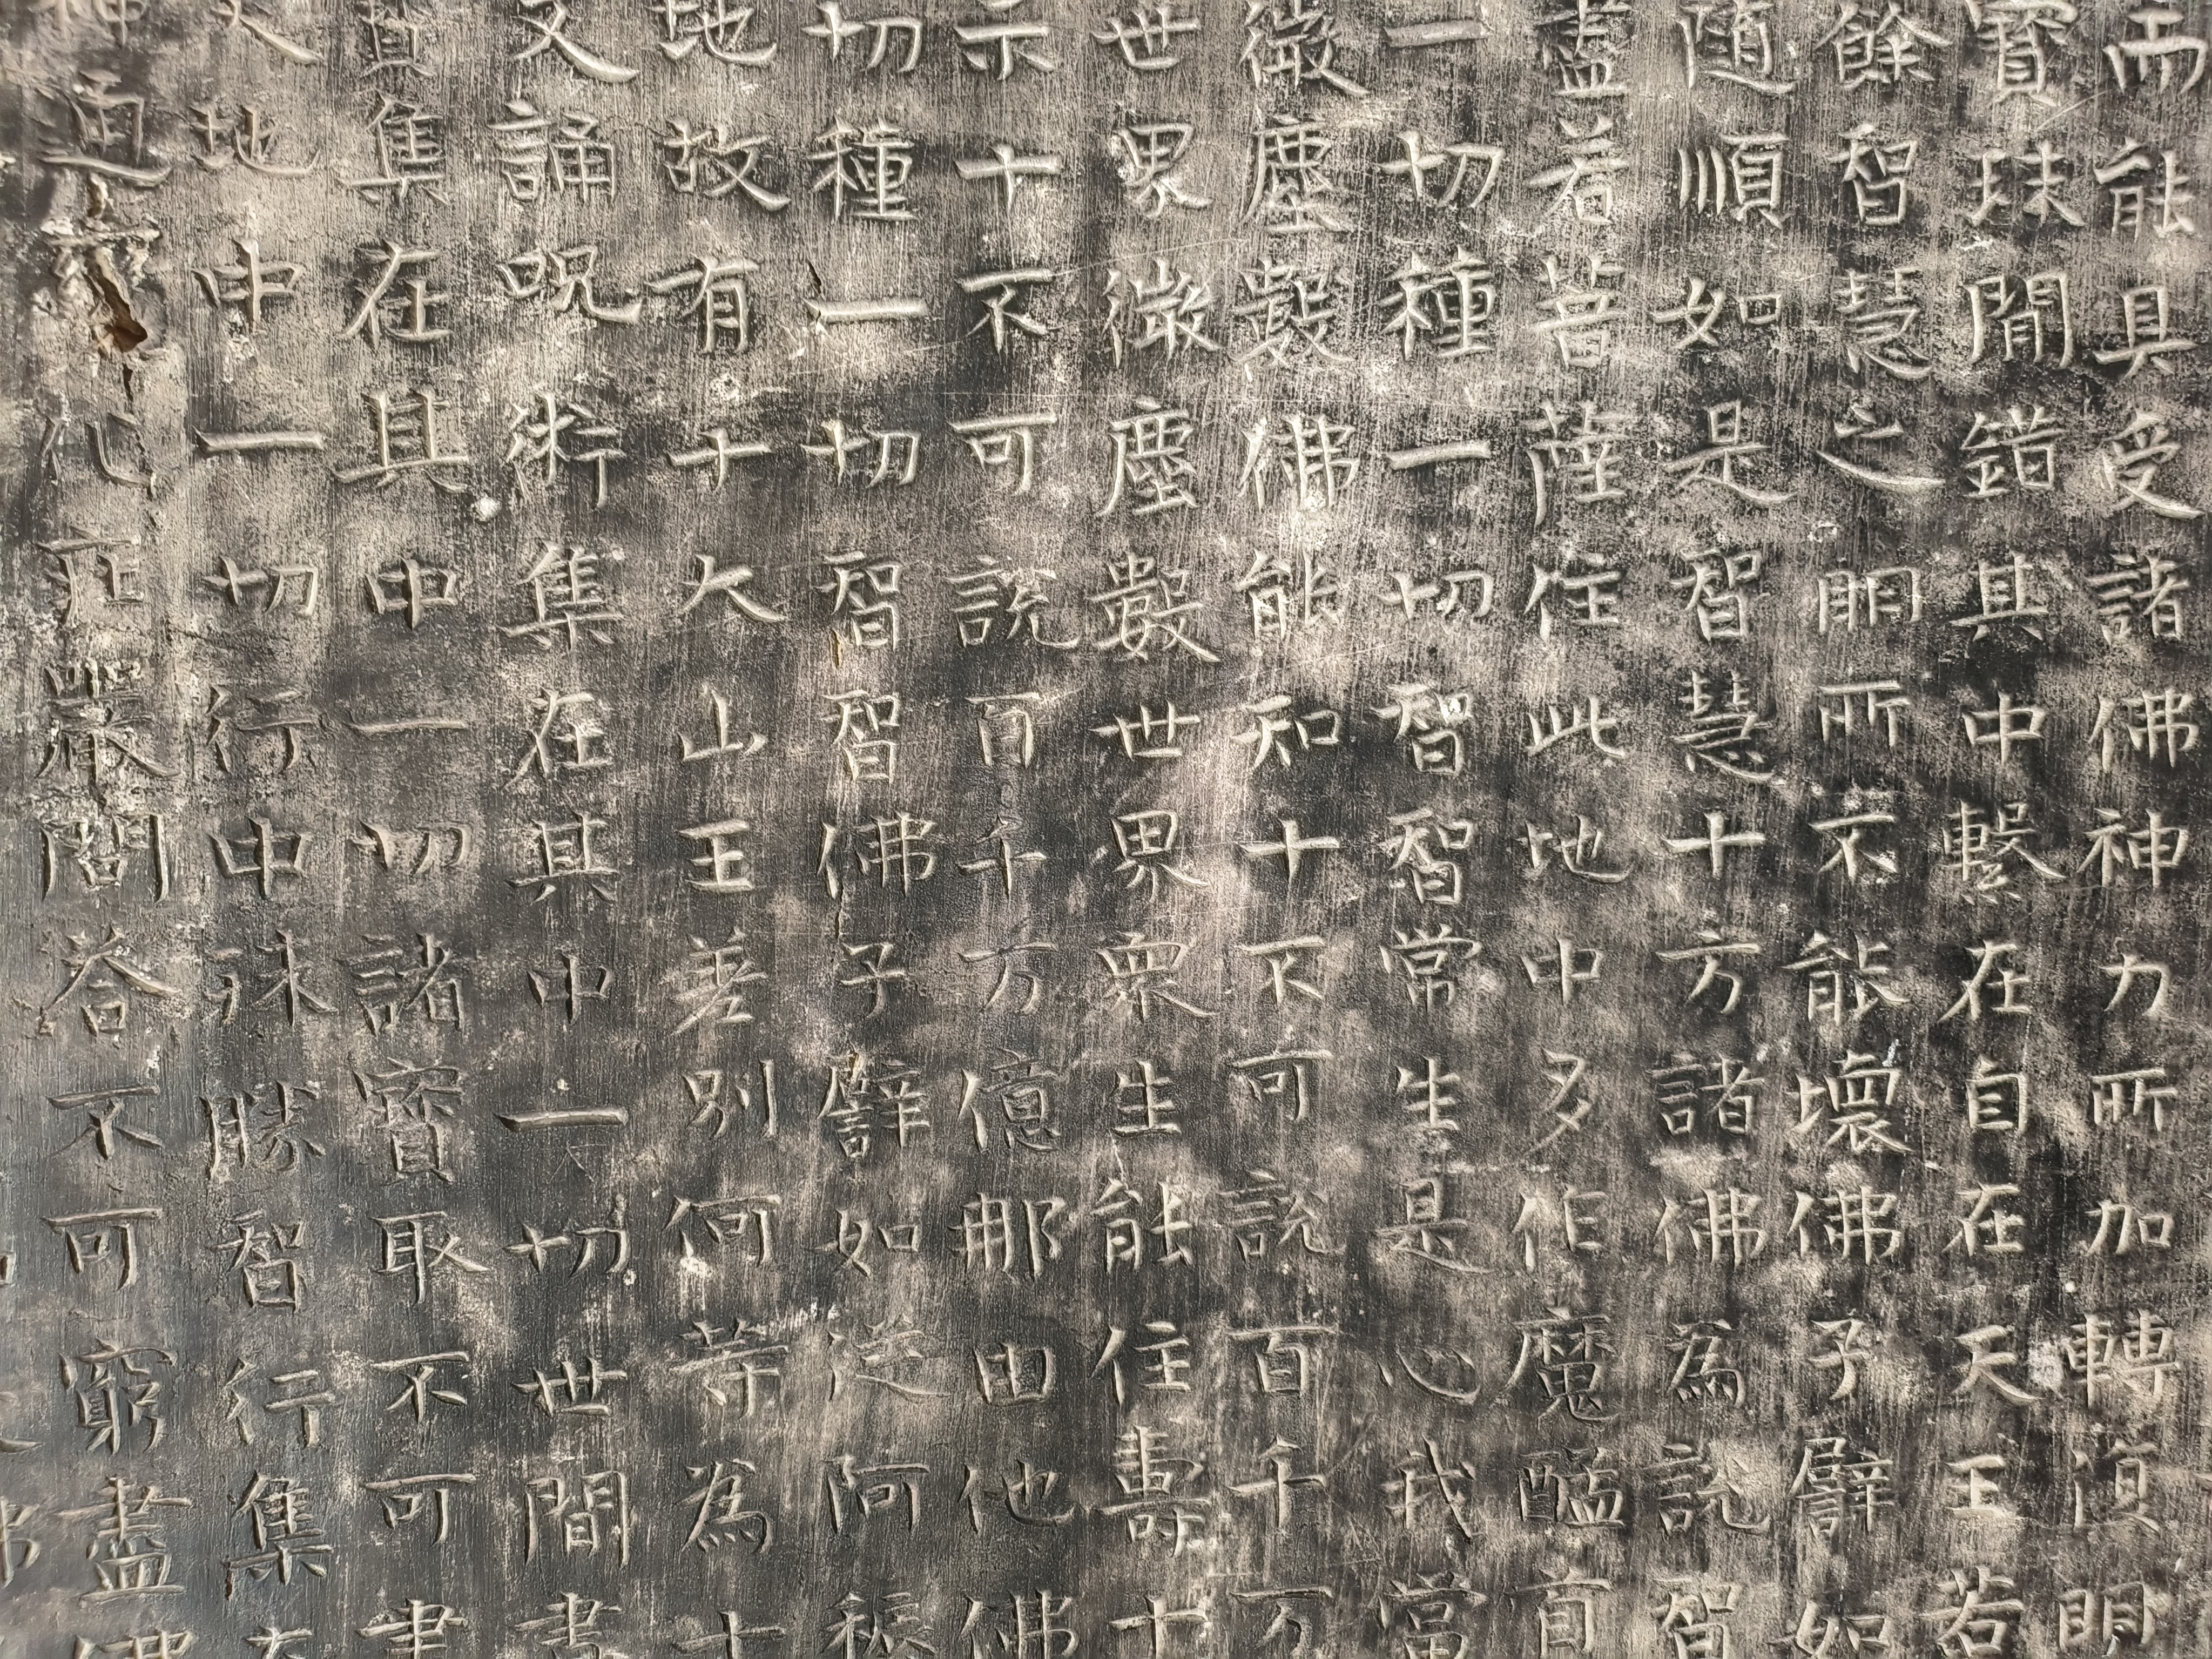 而能具受諸佛神力所加轉復明
寶珠間錯其中繫在自在天王若
餘智慧之明所不能壞佛子譬如
隨順如是智慧十方諸佛為說智
盡若菩薩住此地中多作魔醯首
一切種一切智智常生是心我當
微塵數佛能知十不可說百千万
世界微塵數世界眾生能住壽十
示十不可說百千万億那由他佛
切種一切智智佛子譬如從阿耨
地故有十大山王差別何等為十
又誦呪術集在其中一切世間書
真集在其中一切諸寶取不可聿
地中一切行中殊勝智行集在
神通 化莊嚴問答不可窮盡佛